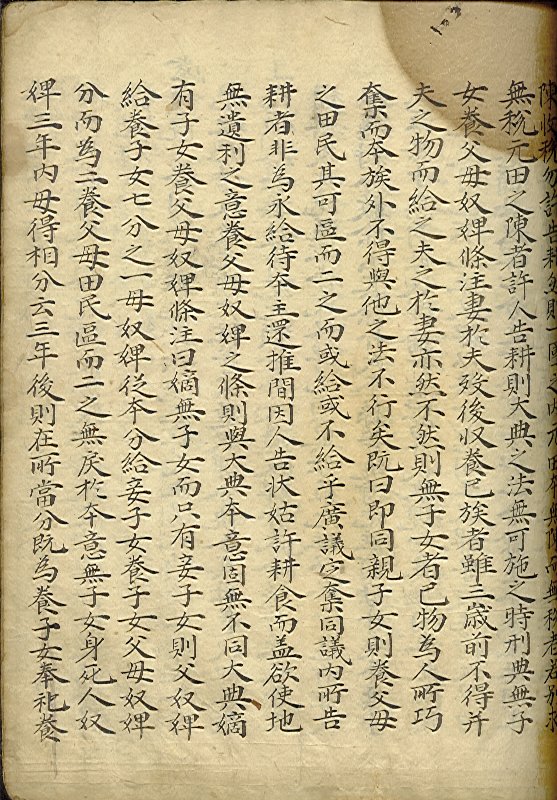 無稅元田之陳者許人告耕則大典之法無可施之時刑典無子
女養父母奴婢條注妻於夫歿後收養己族者雖三歲前不得幷
夫之物而給之夫之於妻亦然不然則無子女者己物為人所巧
奪而本族外不得與他之法不行矣既曰即同親子女則養父母
之田民其可區而二之而或給或不給乎廣議定奪同議內所告
耕者非為永給待本主還推間因人告狀姑許耕食而盖欲使地
無遺利之意養父母奴婢之條則與大典本意固無不同大典嫡
有子女養父母奴婢條注曰嫡無子女而只有妾子女則父奴婢
給養子女七分之一母奴婢從本分給妾子女養子女父母奴婢
分而為二養父母田民區而二之無戾於本意無子女身死人奴
婢三年內毋得相分云三年後則在所當分既為養子女奉祀養